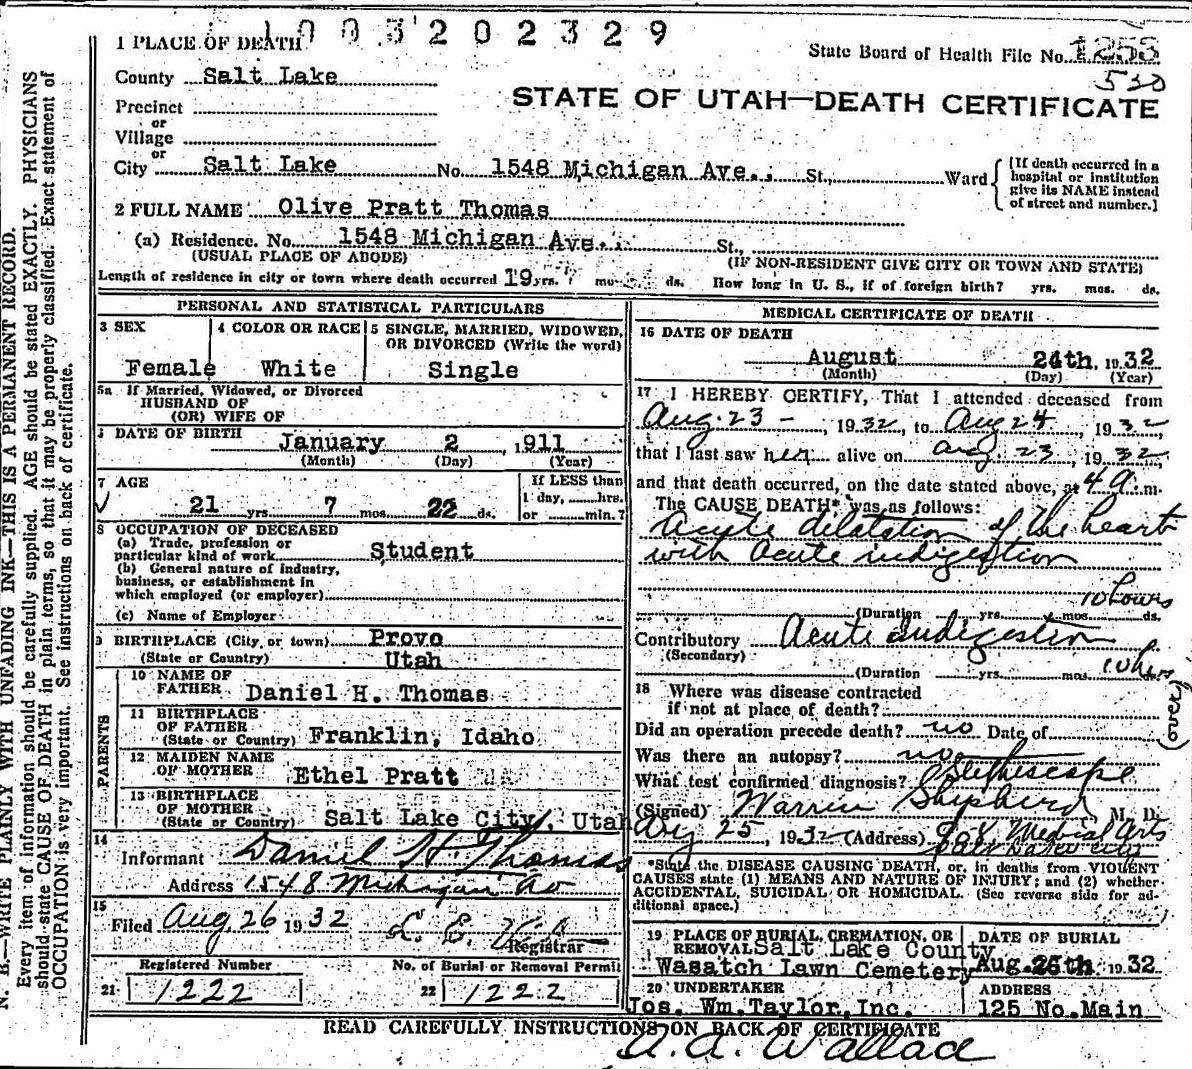 1003202329
1 PLACE OF DEATH
State Board of Health File No. 1253
530
County Salt Lake
STATE OF UTAH—DEATH CERTIFICATE
Precinct
or
Village
or
City Salt Lake No. 1548 Michigan Ave.; St., Ward
[If death occurred in a
hospital or institution
give its NAME instead
of street and number.]
2 FULL NAME Olive Pratt Thomas
(a) Residence. No. 1548 Michigan Ave. St.,
(USUAL PLACE OF ABODE) (IF NON-RESIDENT GIVE CITY OR TOWN AND STATE)
Length of residence in city or town where death occurred 19 yrs. mos. ds. How long in U. S., if of foreign birth? yrs. mos. ds.
PERSONAL AND STATISTICAL PARTICULARS
3 SEX
Female
4 COLOR OR RACE
White
5 SINGLE, MARRIED, WIDOWED,
OR DIVORCED (Write the word)
Single
5a If Married, Widowed, or Divorced
HUSBAND OF
(OR) WIFE OF
DATE OF BIRTH January 2, 1911
(Month) (Day) (Year)
7 AGE
21 yrs 7 mos. 22 ds.
If LESS than
1 day, hrs.
or min.?
8 OCCUPATION OF DECEASED
(a) Trade, profession or
particular kind of work Student
(b) General nature of industry,
business, or establishment in
which employed (or employer)
(c) Name of Employer
9 BIRTHPLACE (City or town) Provo
(State or Country) Utah
PARENTS
10 NAME OF
FATHER Daniel H. Thomas
11 BIRTHPLACE
OF FATHER
(State or Country) Franklin, Idaho
12 MAIDEN NAME
OF MOTHER Ethel Pratt
13 BIRTHPLACE
OF MOTHER
(State or Country) Salt Lake City, Utah
14
Informant Daniel H. Thomas
Address 1548 Michigan Av
15
Filed Aug. 26 1932 L. E.
Registrar
Registered Number
21 1222
No. of Burial or Removal Permit
22 1222
MEDICAL CERTIFICATE OF DEATH
16 DATE OF DEATH
August 24th, 1932
(Month) (Day) (Year)
17 I HEREBY CERTIFY, That I attended deceased from
Aug. 23 -, 1932, to Aug 24, 1932
that I last saw her alive on Aug. 23, 1932
and that death occurred, on the date stated above, at 4 a. m.
The CAUSE DEATH* was as follows:
Acute dilatation of the heart
with acute indigestion
10 hours
(Duration yrs. mos. ds.
Contributory Acute Indigestion
(Secondary)
10 hrs
(Duration yrs. mos. ds.
18 Where was disease contracted
if not at place of death?
(over)
Did an operation precede death? no Date of
Was there an autopsy? no
What test confirmed diagnosis? Stethescope
(Signed) Warren Shepherd, M. D.
Aug 25, 1932 (Address) Medical Arts
Salt Lake City
*State the DISEASE CAUSING DEATH, or, in deaths from VIOLENT
CAUSES state (1) MEANS AND NATURE OF INJURY; and (2) whether
ACCIDENTAL, SUICIDAL OR HOMICIDAL. (See reverse side for ad-
ditional space.)
19 PLACE OF BURIAL, CREMATION, OR
REMOVAL Salt Lake County
Wasatch Lawn Cemetery
DATE OF BURIAL
Aug. 26th 1932
20 UNDERTAKER
Jos. Wm. Taylor, Inc.
ADDRESS
125 No. Main
READ CAREFULLY INSTRUCTIONS ON BACK OF CERTIFICATE
A. A. Wallace
N. B.—WRITE PLAINLY WITH UNFADING INK—THIS IS A PERMANENT RECORD.
Every item of information should be carefully supplied. AGE should be stated EXACTLY. PHYSICIANS
should state CAUSE OF DEATH in plain terms, so that it may be properly classified. Exact statement of
OCCUPATION is very important. See instructions on back of certificate.